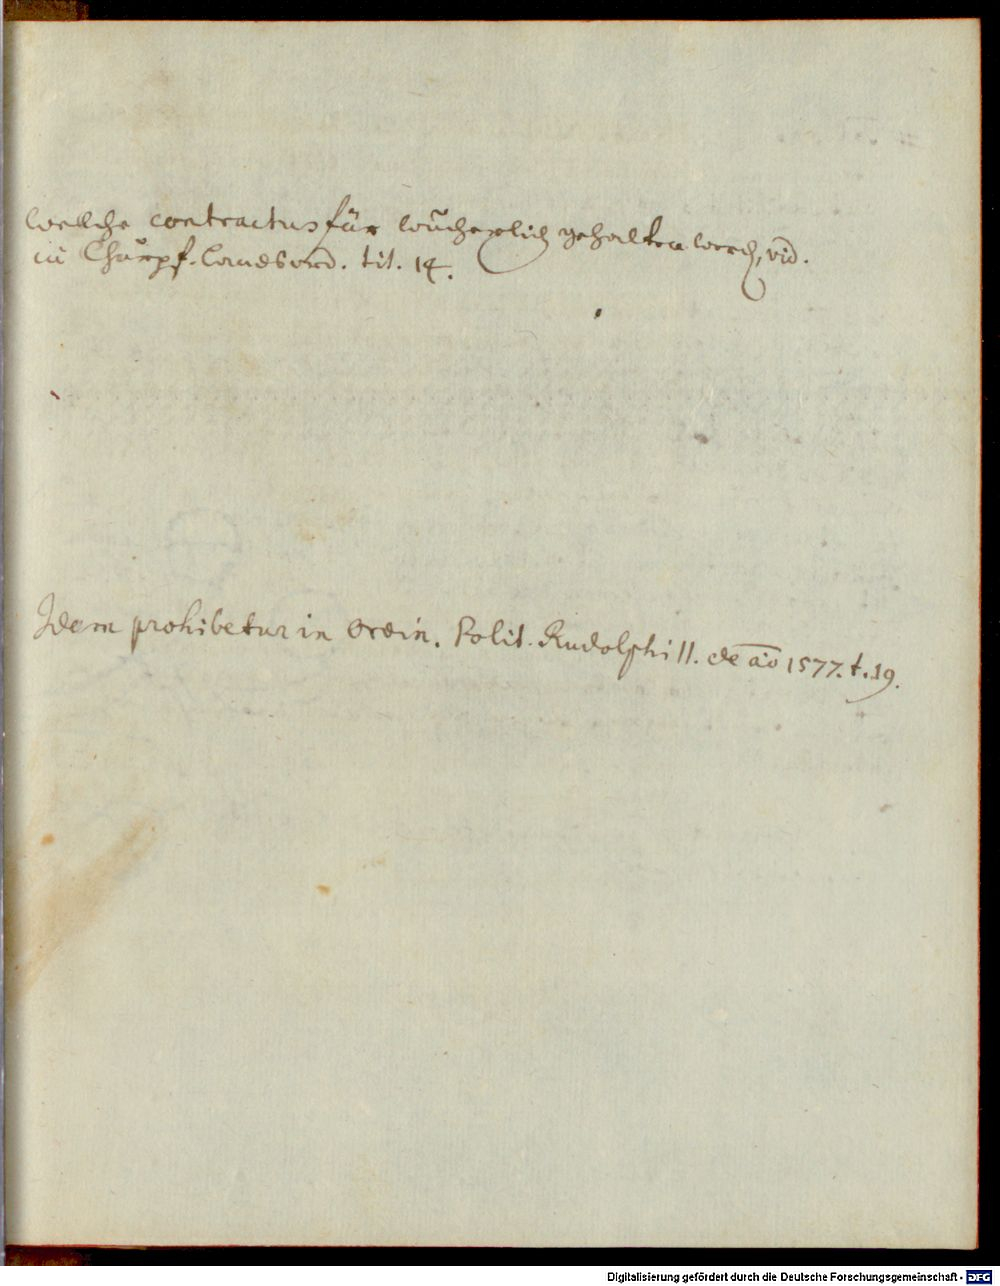 Wellche contractus für wücherlich gehalten werdē, vid.
in Churpf. Landsord. tit. 14.
Idem prohibetur in Ordin. Polit. Rudolphi II. de aō 1577. t. 19.
Digitalisierung gefördert durch die Deutsche Forschungsgemeinschaft - DFG